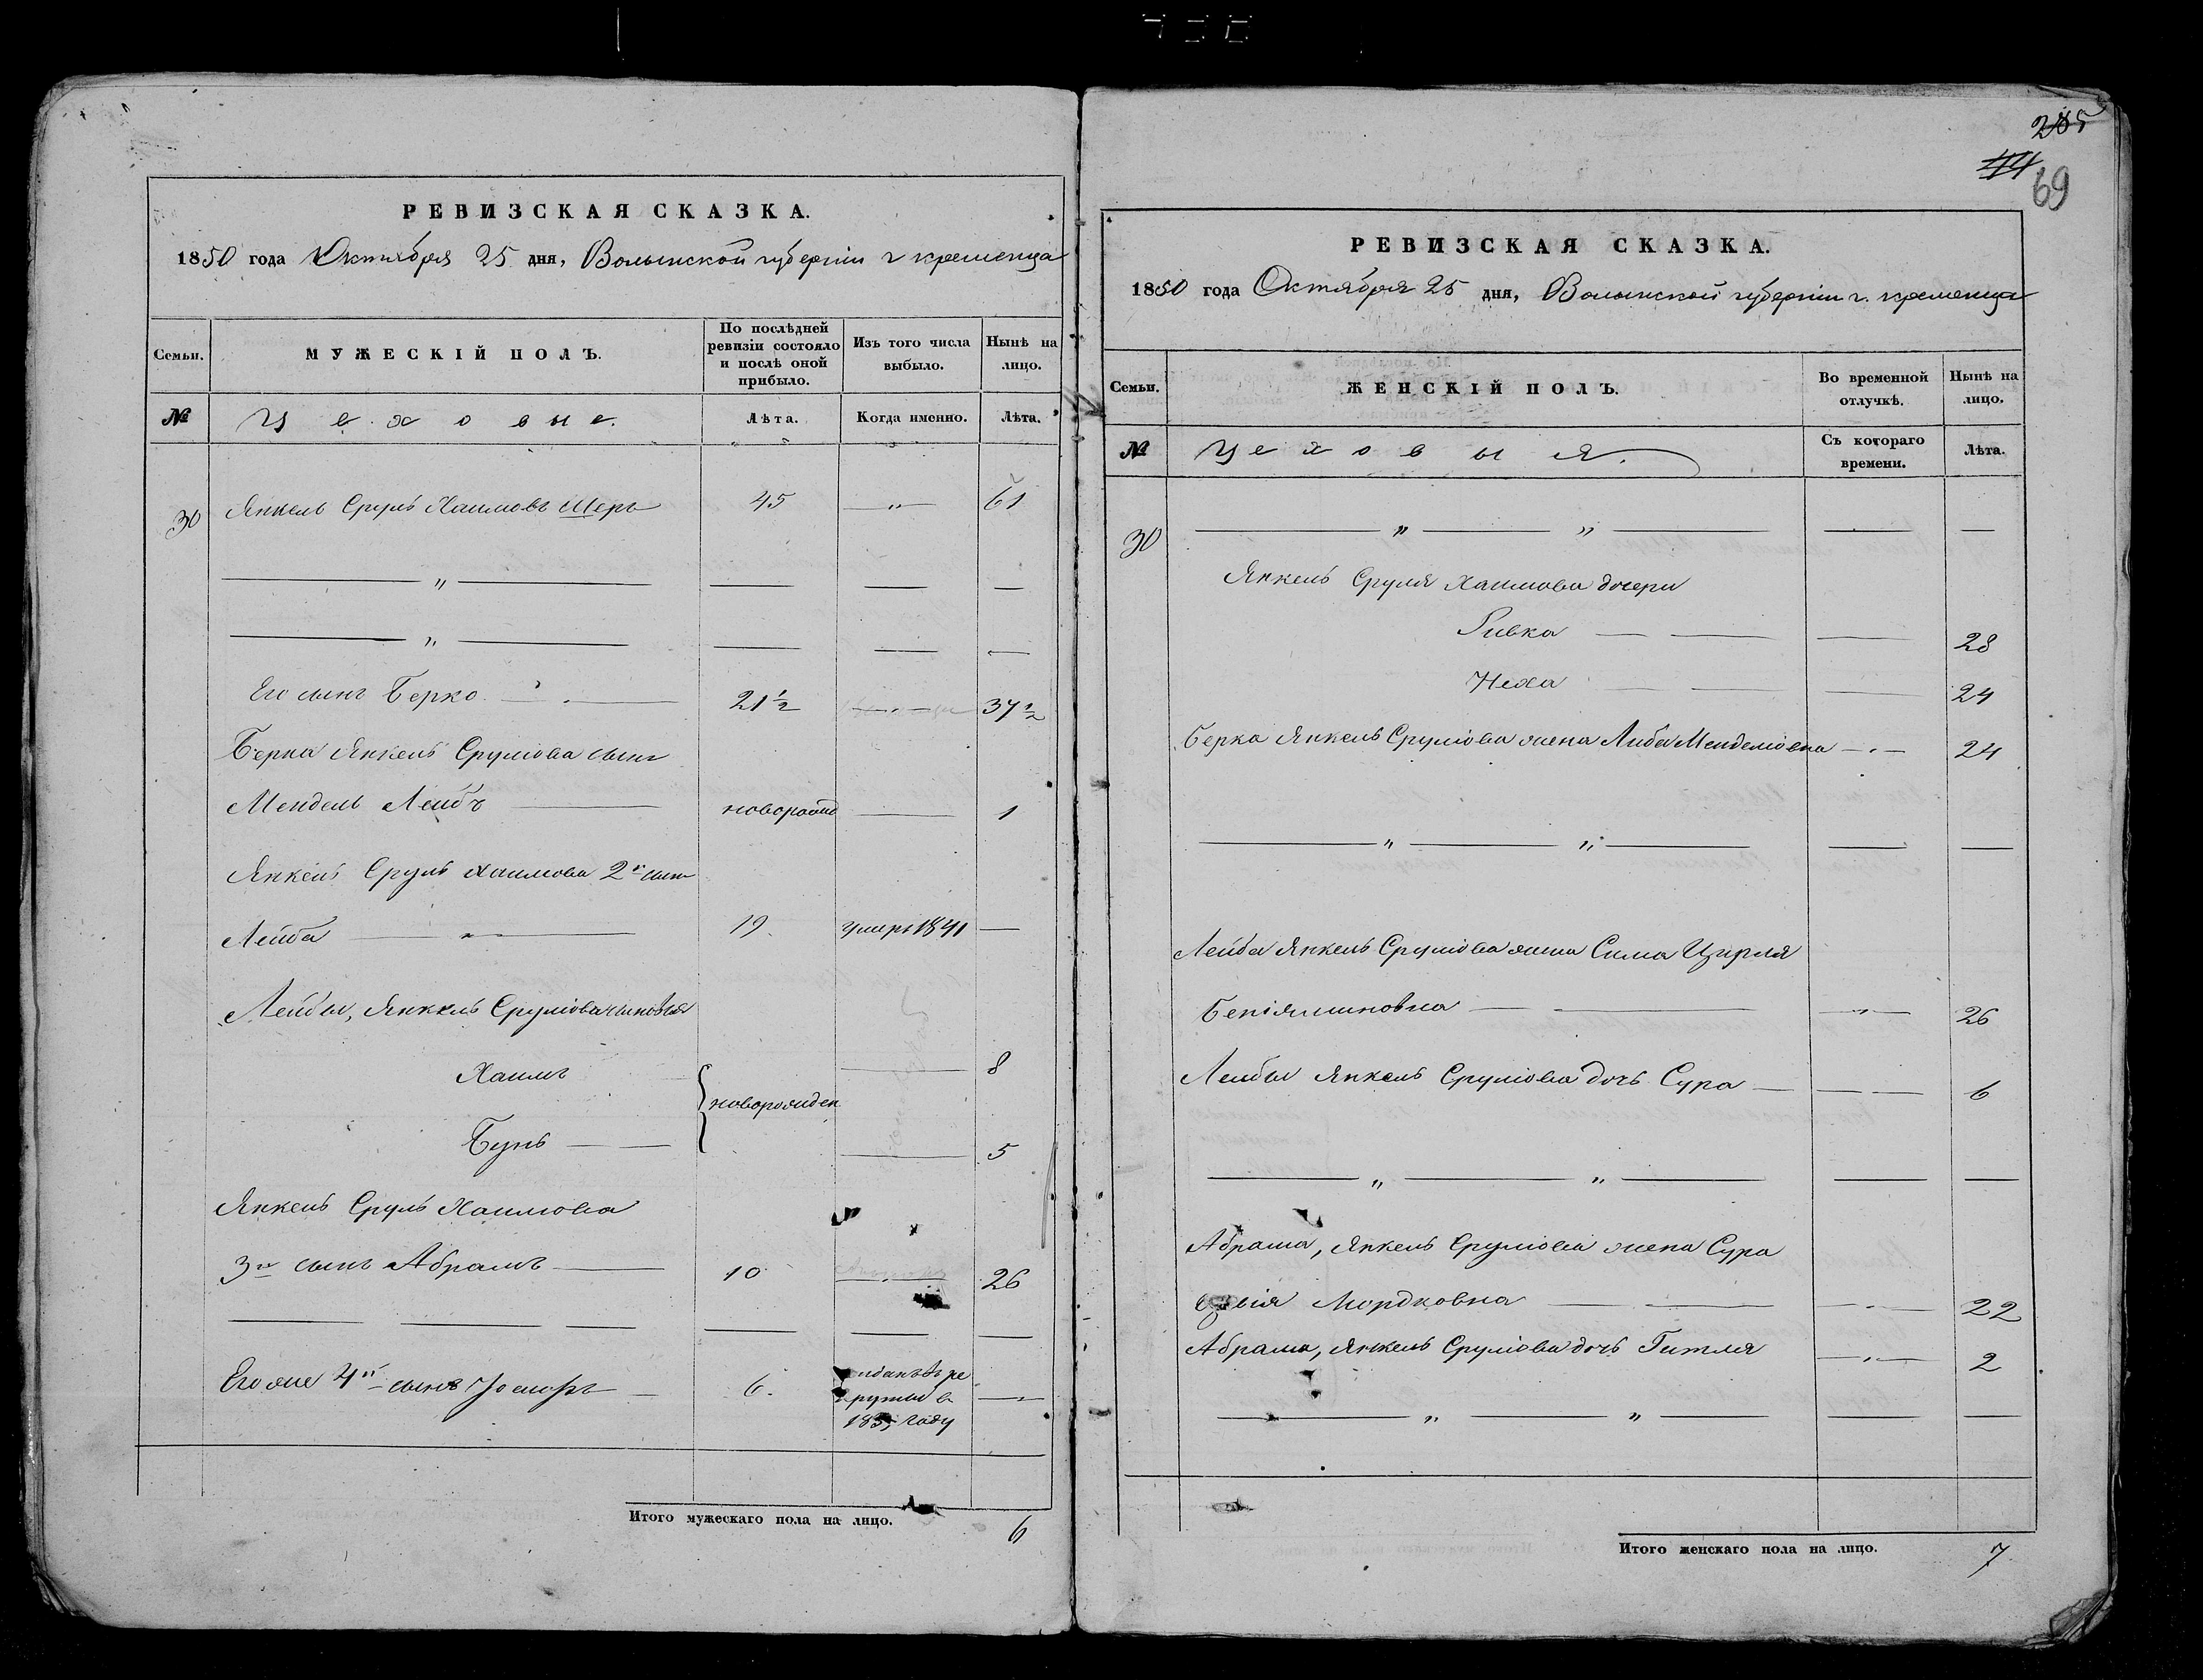 РЕВИЗСКАЯ СКАЗКА.
1850 года Октября 25 дня, Волынской губерніи г кременца
Семьи.
МУЖЕСКІЙ ПОЛЪ.
По послѣдней ревизіи состояло и послѣ оной прибыло.
Изъ того числа выбыло.
Нынѣ на лицо.
№
Цеховые.
Лѣта.
Когда именно.
Лѣта.
30 Янкель Сруль Хаимовъ Шеръ 45 — „ — 61
— „ — — — —
— „ — — — —
Его сынъ Берко — 21½ — „ — 37½
Берка Янкель Срулюва сынъ
Мендель Лейбъ — новорожд — 1
Янкель Сруль Хаимова 2й сынъ
Лейба — „ — 19. умеръ 1841 —
Лейбы, Янкель Срулюва сыновья
Хаимъ — 8
{ новорожден
Бунь — — 5
Янкель Сруль Хаимова
3й сынъ Абрамъ — 10 — „ — 26
— — — — — —
Его же 4й сынъ Іосифъ — 6. отданъ въ ре
круты в
183 году —
Итого мужескаго пола на лицо. 6
285
44
69
РЕВИЗСКАЯ СКАЗКА.
1850 года Октября 25 дня, Волынской губерніи г. кременца
Семьи.
ЖЕНСКІЙ ПОЛЪ.
Во временной отлучкѣ.
Нынѣ на лицо.
№
Цеховыя.
Съ котораго времени.
Лѣта.
30 — „ — „ — — —
Янкель Сруля Хаимова дочери
Ривка — — — 28
Неха — — — 24
Берка Янкель Срулюва жена Либа Менделювна — „ — 24
— „ — „ — — —
Лейба Янкель Срулюва жена Сима Цирля
Беніяминовна — — — „ — 26
Лейбы Янкель Срулюва дочь Сура — — — 6
— „ — „ — — —
Абрама, Янкель Срулюва жена Сура
Цивія Мордковна — — — „ — 22
Абрама, Янкель Срулюва дочь Гитля — „ — 2
— „ — „ — — —
Итого женскаго пола на лицо. 7